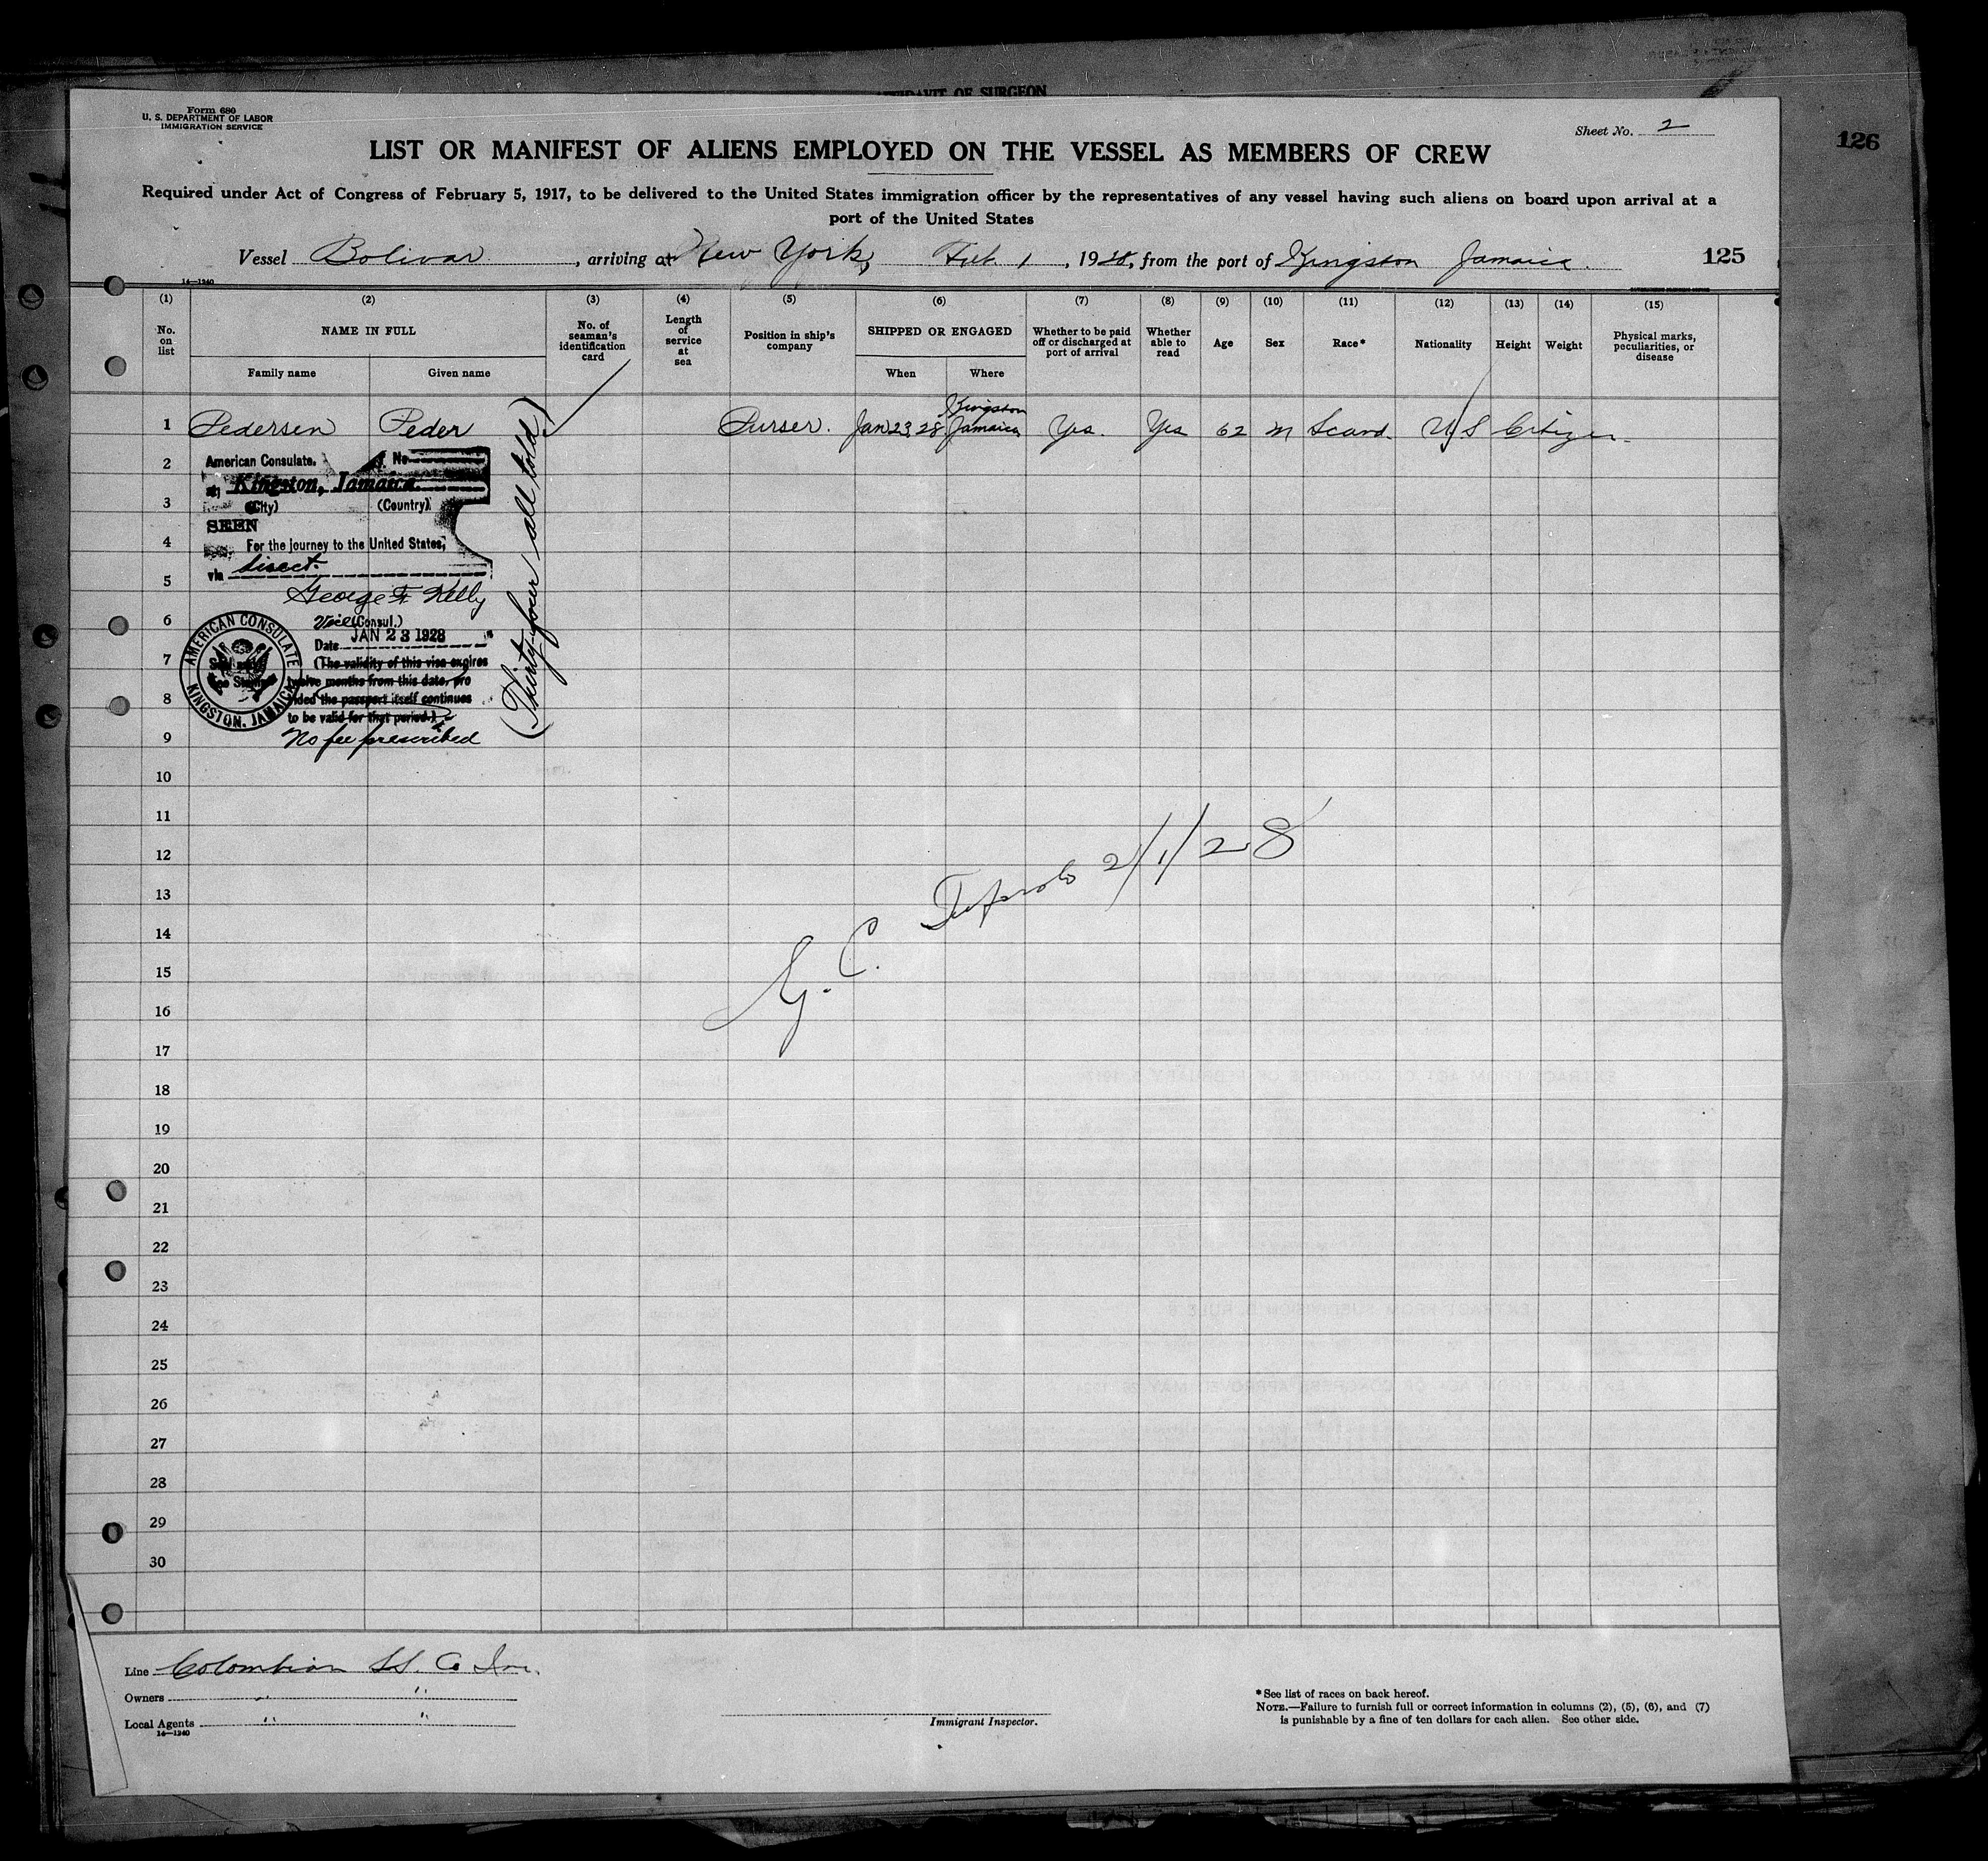 AFFIDAVIT OF SURGEON
Form 680
U. S. DEPARTMENT OF LABOR
IMMIGRATION SERVICE
Sheet No. 2
126
LIST OR MANIFEST OF ALIENS EMPLOYED ON THE VESSEL AS MEMBERS OF CREW
Required under Act of Congress of February 5, 1917, to be delivered to the United States immigration officer by the representatives of any vessel having such aliens on board upon arrival at a
port of the United States
Vessel Bolivar, arriving at New York, Feb. 1, 1928, from the port of Kingston Jamaica.
125
14—1240
(1) (2) (3) (4) (5) (6) (7) (8) (9) (10) (11) (12) (13) (14) (15)
No. on list
NAME IN FULL
Family name
Given name
No. of seaman's identification card
Length of service at sea
Position in ship's company
SHIPPED OR ENGAGED
When
Where
Whether to be paid off or discharged at port of arrival
Whether able to read
Age
Sex
Race*
Nationality
Height
Weight
Physical marks, peculiarities, or disease
1 Pedersen Peder Purser. Jan 23 28 Kingston Jamaica Yes. Yes 62 M Scand. U S Citizen
2
3
4
5
6
7
8
9
10
11
12
13
14
15
16
17
18
19
20
21
22
23
24
25
26
27
28
29
30
American Consulate. No
at Kingston, Jamaica.
(City) (Country)
SEEN
For the journey to the United States,
via direct.
George F Kelly
Vice (Consul.)
Date JAN 23 1928
(The validity of this visa expires
twelve months from this date, pro
vided the passport itself continues
to be valid for that period.)
No fee prescribed
AMERICAN CONSULATE
KINGSTON, JAMAICA
(Thirty-four all told)
2/1/28
G. C.
Line Colombian SS. Co Inc.
Owners " "
Local Agents " "
14—1240
Immigrant Inspector.
* See list of races on back hereof.
NOTE.—Failure to furnish full or correct information in columns (2), (5), (6), and (7)
is punishable by a fine of ten dollars for each alien. See other side.